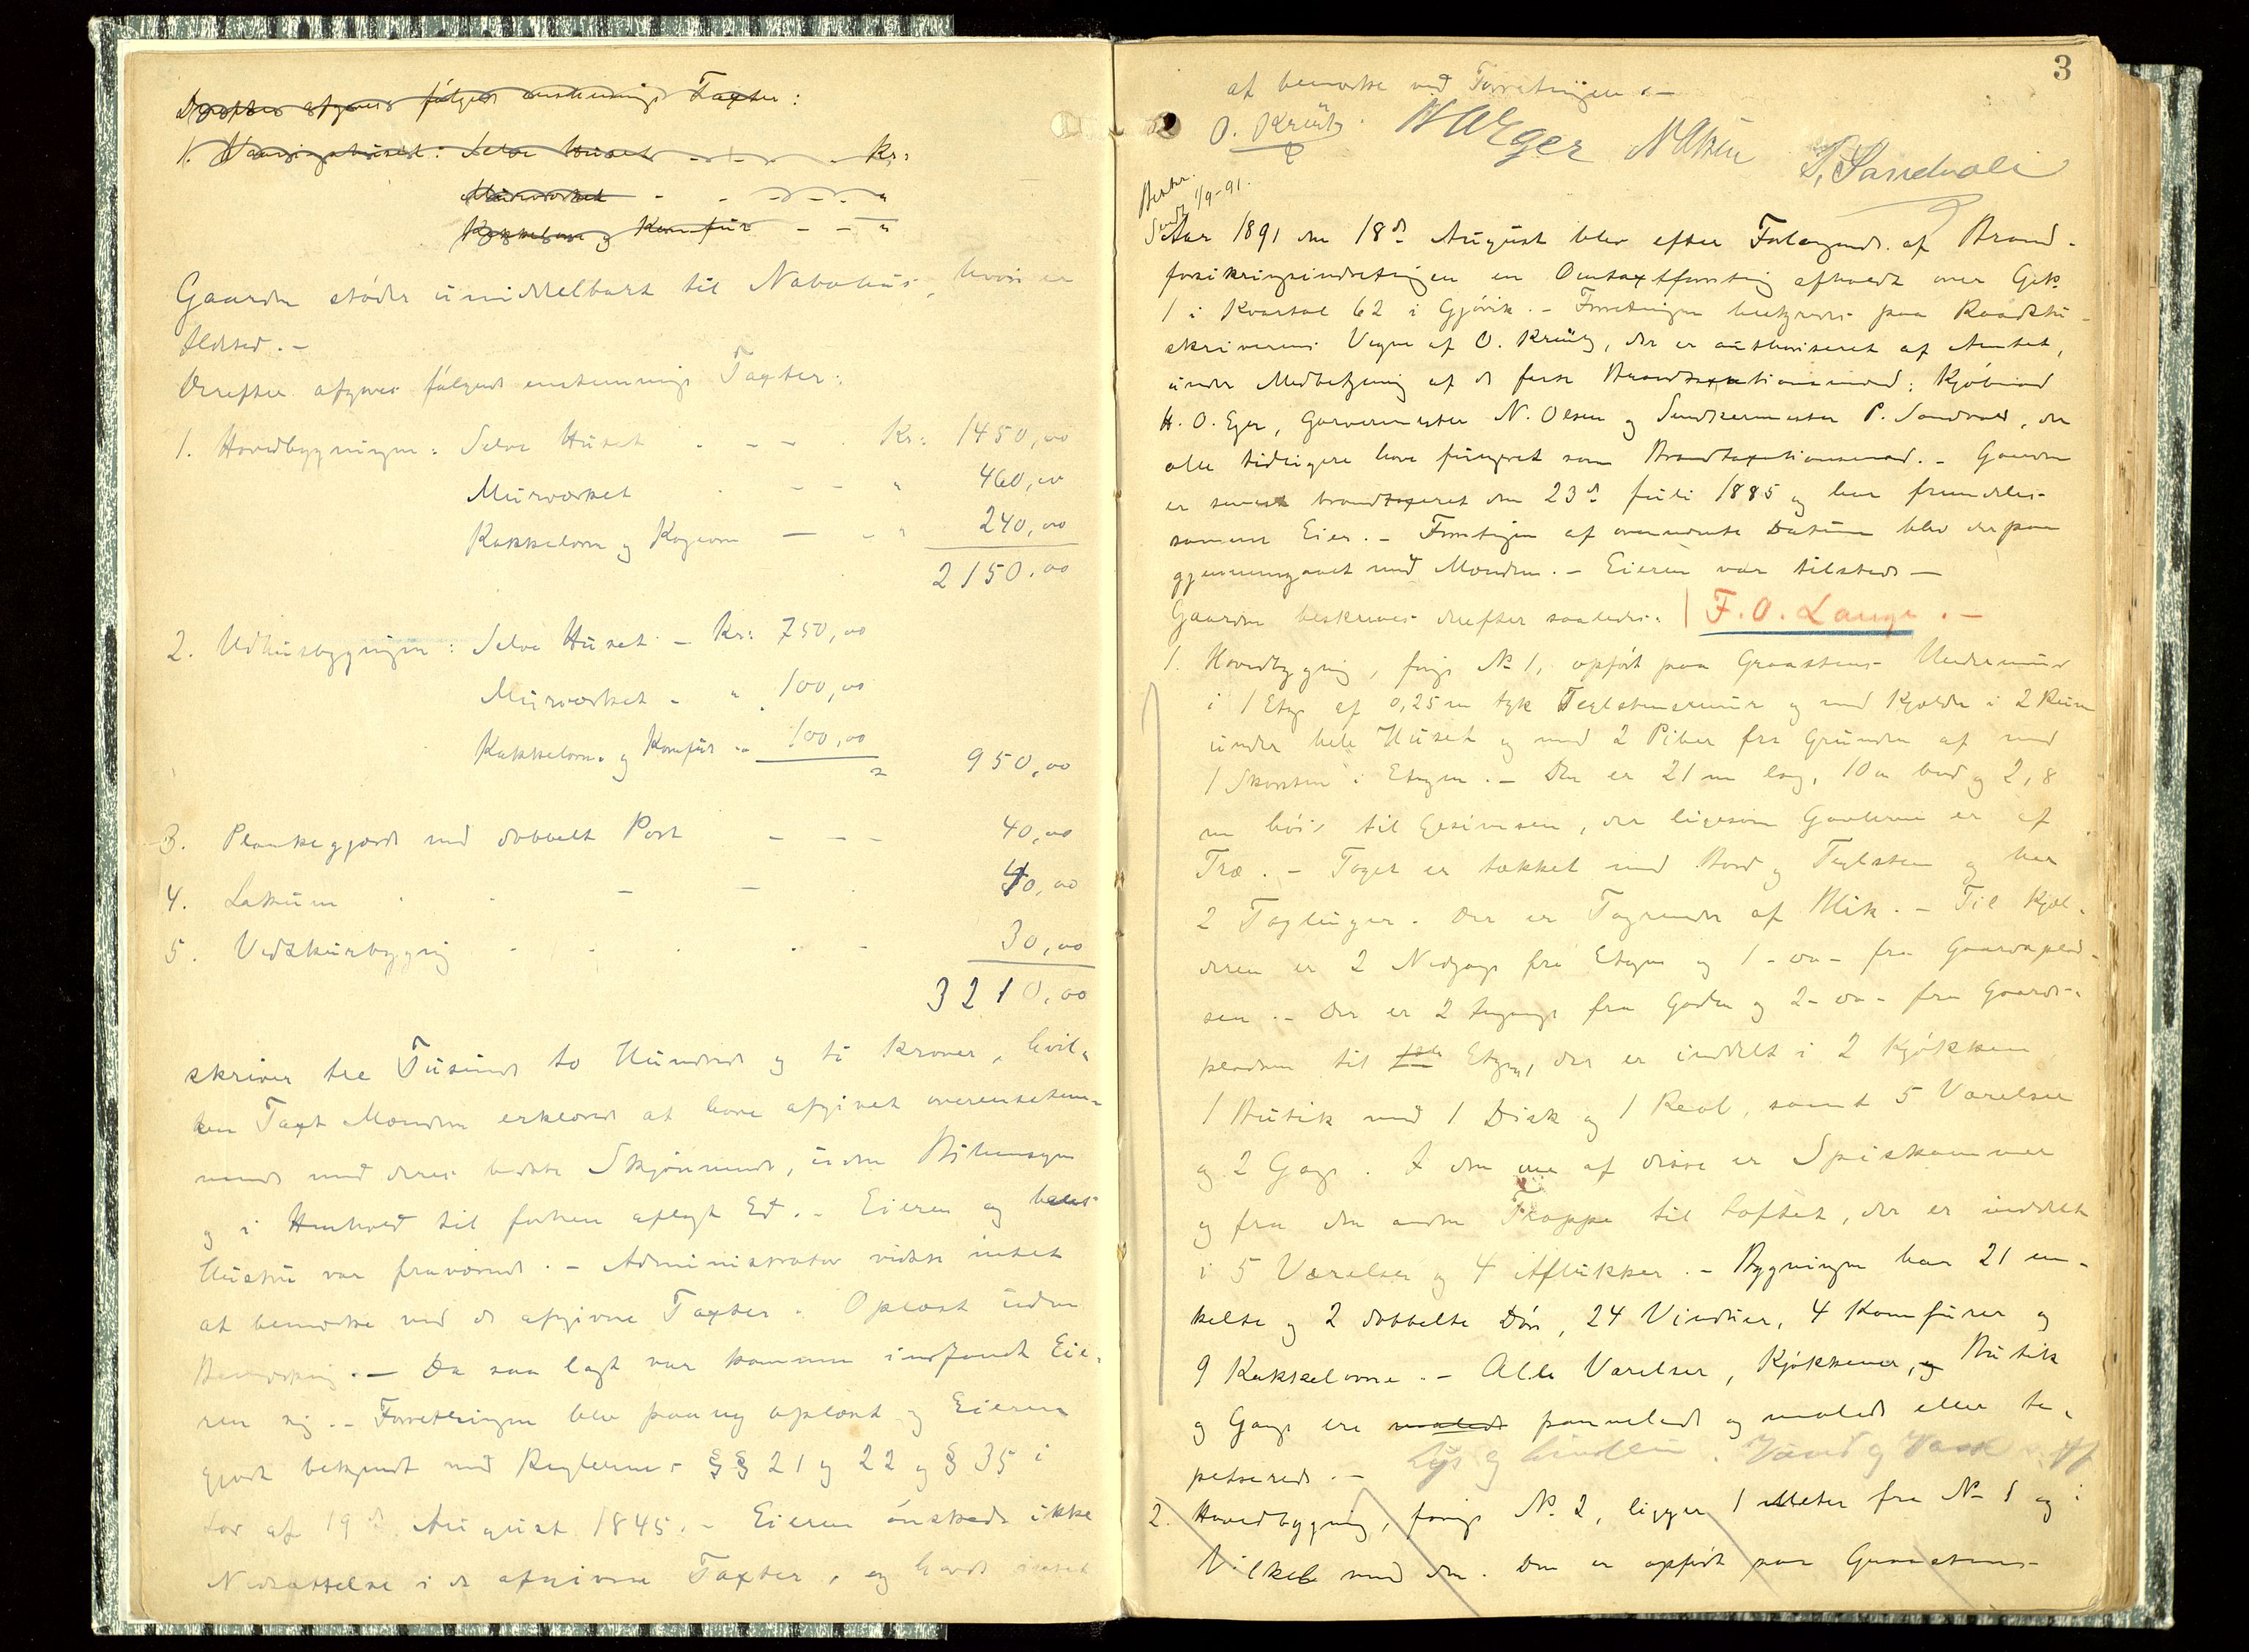 Derefter afgaves følgende enstemmige Taxter:
1. Vaaningshuset: Selve Huset - - - Kr:
Murværket - - - - "
Kakkelovne og Komfur - - "
Gaarden støder umiddelbart til Nabohus, hvori er
Ildsted. -
Derefter afgaves følgende enstemmige Taxter:
1. Hovedbygningen: Selve Huset - - - Kr: 1450,00
Murværket - - " 460,00
Kakkelovne og Kogeovn - - " 240,00
2150,00
2. Udhusbygningen: Selve Huset - Kr: 750,00
Murværket - " 100,00
Kakkelovne og Komfur - " 100,00
950,00
3. Plankegjærde med dobbelt Port - - - 40,00
4. Lokum - - 40,00
5. Vedskurbygning - - - 30,00
3210,00
skriver tre Tusinde to Hundrede og ti Kroner, hvil-
ken Taxt Mændene erklærede at have afgivet overensstem-
mende med deres bedste Skjønnende, uden Bihensyn
og i Henhold til forhen aflagt Ed. - Eieren og hans
Hustru var fraværende. - Administrator vidste intet
at bemærke ved de afgivne Taxter. Oplæst uden
Bemærkning. - Da saa langt var kommen indfandt Eie-
ren sig. - Forretningen blev paany oplæst og Eieren
gjort bekjendt med Reglerne i §§ 21 og 22 og § 35 i
Lov af 19de August 1845. - Eieren ønskede ikke
Nedsættelse i de afgivne Taxter, og havde intet
3
at bemærke ved Forretningen. -
O. Kreutz. H O Eger N Olsen P. Sandvold
1/9-91.
Aar 1891 den 18de August blev efter Forlangende af Brand-
forsikringsindretningen en Omtaxtforretning afholdt over Grk
1 i Kvartal 62 i Gjøvik. - Forretningen bestyredes paa Raadstu-
skriverens Vegne af O. Kreutz, der er authoriseret af Amtet,
under Medbetjening af de faste Brandtaxationsmænd: Kjøbmand
H. O. Eger, Garvermester N. Olsen og Smedkermester P. Sandvold, der
alle tidligere have fungeret som Brandtaxationsmænd. - Gaarden
er senest brandtaxeret den 23de Juli 1885 og har fremdeles
samme Eier. - Forretningen af ovennævnte Datum blev derpaa
gjennemgaaet med Mændene. - Eieren var tilstede -
Gaarden beskrives derefter saaledes: | F. O. Lange. -
1. Hovedbygning, forrige No 1, opført paa Graastens Undermur
i 1 Etage af 0,25 m tyk Teglstensmur og med Kjælder i 2 Rum
under hele Huset og med 2 Piber fra Grunden af med
1 Skorsten i Etagen. - Den er 21 m lang, 10 m bred og 2,8
m høi til Gesimsen, der ligesom Gavlerne er af
Træ. - Taget er tækket med Bord og Teglsten og har
2 Tagluger. Der er Tagrender af Blik. - Til Kjæl-
deren er 2 Nedgange fra Etagen og 1 - do - fra Gaardsplad-
sen. - Der er 2 Indgange fra Gaden og 2 - do - fra Gaards-
pladsen til Etagen, der er inddelt i 2 Kjøkken
1 Butik med 1 Disk og 1 Reol, samt 5 Værelser
og 2 Gange. I den ene af disse er Spiskammer
og fra den anden Trappe til Loftet, der er inddelt
i 5 Værelser og 4 Aflukker. - Bygningen har 21 en-
kelte og 2 dobbelte Døre, 24 Vinduer, 4 Komfurer og
9 Kakkelovne. - Alle Værelser, Kjøkkener, og Butik
og Gange ere malede pannelede og malede eller ta-
petserede. - Lys og . Vand og Vask
2. Hovedbygning, forrige No 2, ligger 1 Meter fra No 1 og i
Vinkel med den. Den er opført paa Graastens-